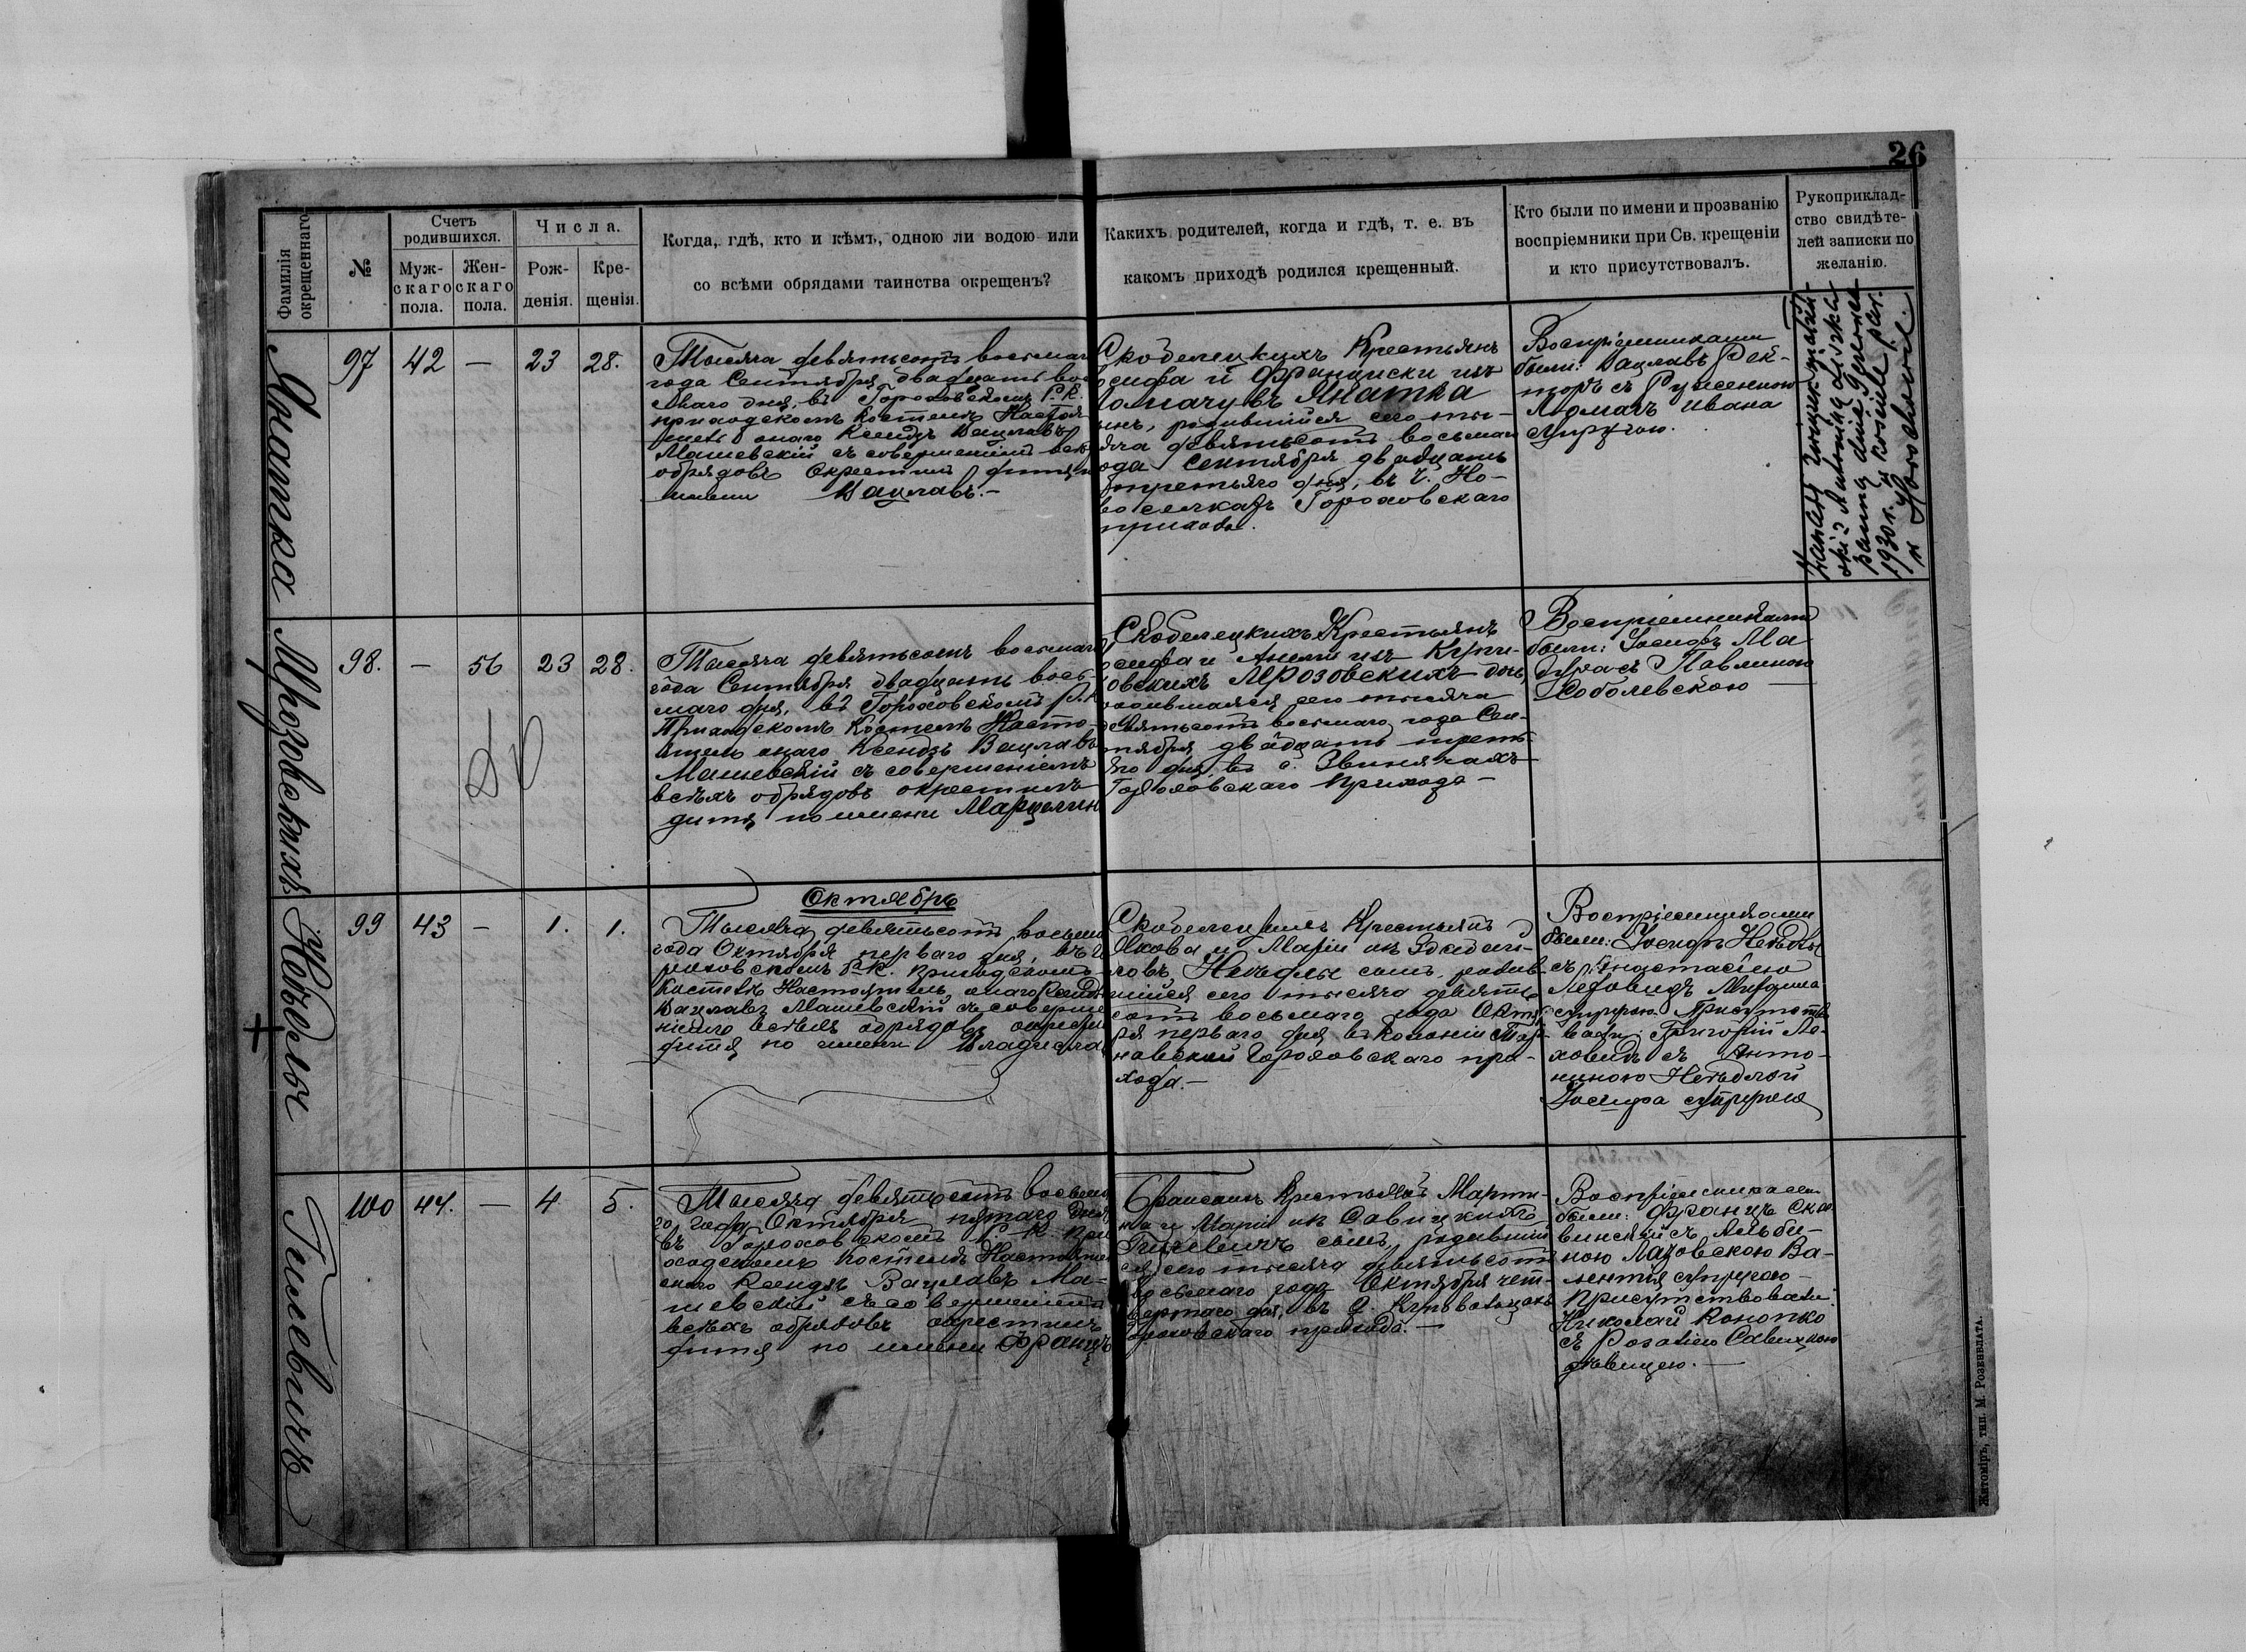 26
Фамилія окрещеннаго.
№
Счетъ родившихся.
Мужскаго пола.
Женскаго пола.
Числа.
Рожденія.
Крещенія.
Когда, гдѣ, кто и кѣмъ, одною ли водою или
со всѣми обрядами таинства окрещенъ?
Какихъ родителей, когда и гдѣ, т. е. въ
какомъ приходѣ родился крещенный.
Кто были по имени и прозванію
воспріемники при Св. крещеніи
и кто присутствовалъ.
Рукоприклад-
ство свидѣте-
лей записки по
желанію.
Янатка
97 42 — 23 28.
Тысяча девятьсотъ восьмаг
года Сентября двадцать вос
маго дня, въ Гороховскомъ Р. К.
приходскомъ костелѣ Настоя
онаго Ксендзъ Вацлавъ
Машевскій съ совершеніемъ всѣх
обрядовъ окрестилъ дитя п
имени Вацлавъ.—
Крестьянъ
осифа и Францишки изъ
Янатка
ынъ, родившійся сего ты-
яча девятьсотъ восьмаго
ода Сентября двадцать
третьяго дня, въ ч. Но-
во селкахъ Гороховскаго
прихода.
Воспріемниками
были: Вацлавъ Рей-
съ Руженною
Ивана
супругою.
1930 r.
w kościele par.
w Horochowie.
Мрозовскихъ
98. — 56 23 28.
Тысяча девятьсотъ восьмаг
года Сентября двадцать вось-
маго дня, въ Гороховскомъ Р. К
Приходскомъ Костелѣ Насто-
ятель онаго Ксендзъ Вацлавъ
Машевскій съ совершеніемъ
всѣхъ обрядовъ окрестилъ
дитя по имени Марцелин
Крестьянъ
осифа и Анели изъ Купи-
овскихъ Мрозовскихъ дочь,
родившаяся сего тысяча
девятьсотъ восьмаго года Сен-
тября двадцать треть-
яго дня, въ с. Звинячахъ
Гороховскаго прихода—
Воспріемниками
были: Іосифъ Ма
съ Павлиною
Соболевскою
Неѣдлы
Октябрь
99 43 — 1. 1.
Тысяча девятьсотъ восьма
года Октября перваго дня, въ Го
роховскомъ Р. К. приходскомъ
костелѣ Настоятель онаго Ксендзъ
Вацлавъ Машевскій съ соверше
ніемъ всѣхъ обрядовъ окрести
дитя по имени Владисла
Крестьянъ
Якова и Маріи изъ
ловъ Неѣдлы сынъ, родив-
шійся сего тысяча девять
сотъ восьмаго года Октяб
ря перваго дня въ колоніи
новской Гороховскаго при-
хода.—
Воспріемниками
были: Іосифъ Неѣдлы
съ Анастасіею
супругою. Присутство
вали: Григорій Ле-
ховидъ съ Анто-
ниною Неѣдлой
Іосифа супругою
Гилевичъ
100 44. — 4 5.
Тысяча девятьсотъ восьма
го года Октября пятаго дня
въ Гороховскомъ Р. К. При
ходскомъ Костелѣ Настоятел
онаго Ксендзъ Вацлавъ Ма-
шевскій съ совершеніемъ
всѣхъ обрядовъ окрестилъ
дитя по имени Францъ
Крестьянъ Марти-
на и Маріи изъ Савицкихъ
Гилевичъ сынъ, родивший
ся сего тысяча девятьсотъ
восьмаго года Октября чет-
вертаго дня, въ д.
Гороховскаго прихода.—
Воспріемниками
были: Францъ Ска
винскій съ Альби-
ною Лазовскою Ва-
лентія супругою—
Присутствовали:
Николай Конопко
съ Розаліею Савицкою
дѣвицею.—
Житоміръ, тип. М. Розенблата.